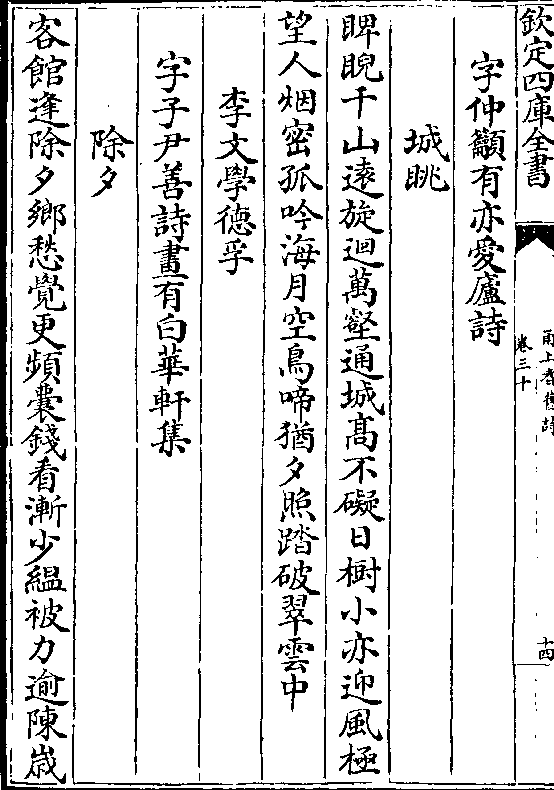 欽定四庫全書
甬上耆舊詩
卷三十
十四
字仲籲有亦愛廬詩
城眺
睥睨千山遠旋迴萬壑通城髙不礙日樹小亦迎風極
望人烟密孤吟海月空鳥啼猶夕照踏破翠雲中
李文學德孚
字子尹善詩畫有白華軒集
除夕
客館逢除夕鄉愁覺更頻囊錢看漸少緼被力逾陳歲